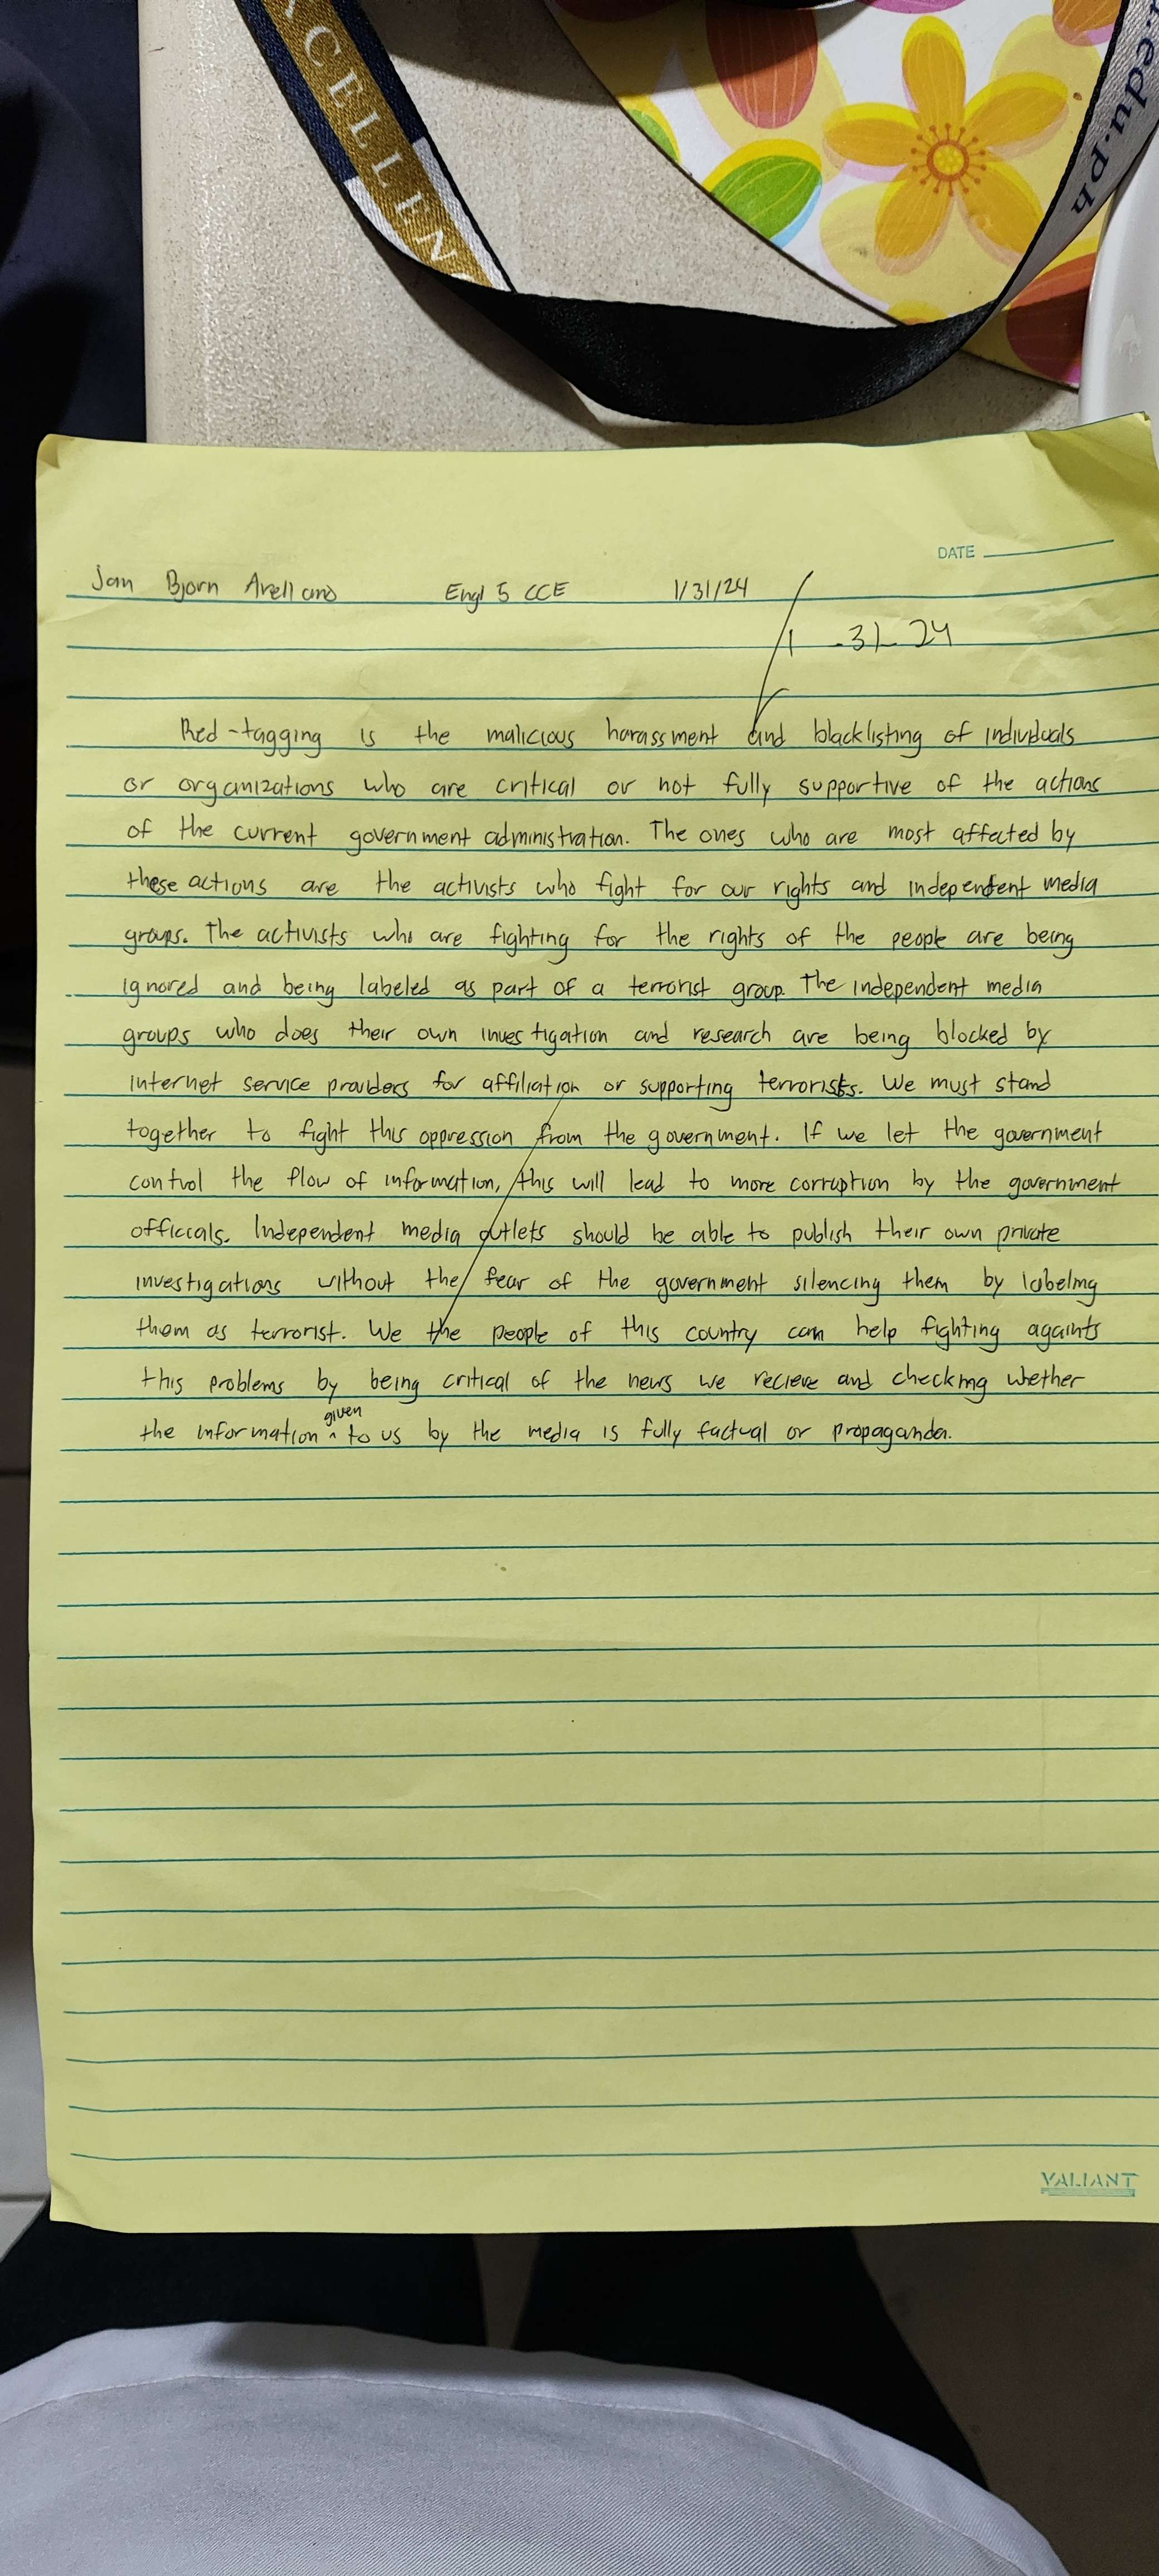 EXCELLENC
.edu.ph
DATE
Jan Bjorn Arellano Engl 5 CCE 1/31/24
1-31-24
Red-tagging is the malicious harassment and blacklisting of individuals
or organizations who are critical or not fully supportive of the actions
of the current government administration. The ones who are most affected by
these actions are the activists who fight for our rights and independent media
groups. The activists who are fighting for the rights of the people are being
ignored and being labeled as part of a terrorist group. The independent media
groups who does their own investigation and research are being blocked by
internet service providers for affiliation or supporting terrorists. We must stand
together to fight this oppression from the government. If we let the government
control the flow of information, this will lead to more corruption by the government
officials. Independent media outlets should be able to publish their own private
investigations without the fear of the government silencing them by labeling
them as terrorist. We the people of this country can help fighting againts
this problems by being critical of the news we recieve and checking whether
the information given to us by the media is fully factual or propaganda.
VALIANT